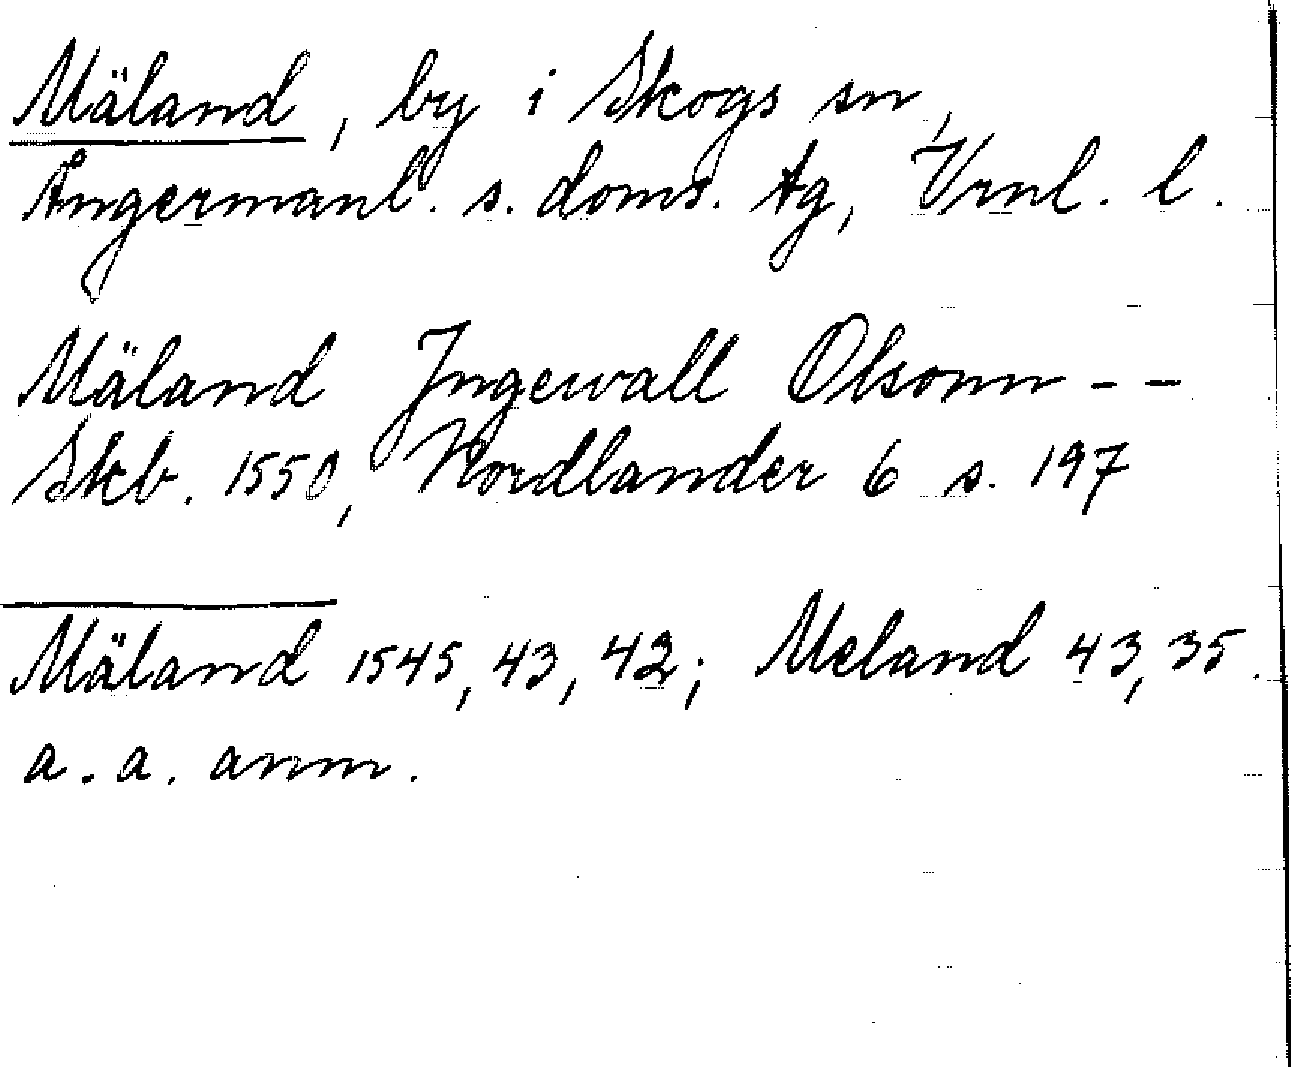 Mäland, by i Skogs sn,
Ångermanl. s. doms. tg, Vrnl. l.
Mäland Jngewall Olsonn - -
Skb. 1550, Nordlander 6 s. 197
Mäland 1545, 43, 42; Meland 43, 35.
a. a. anm.